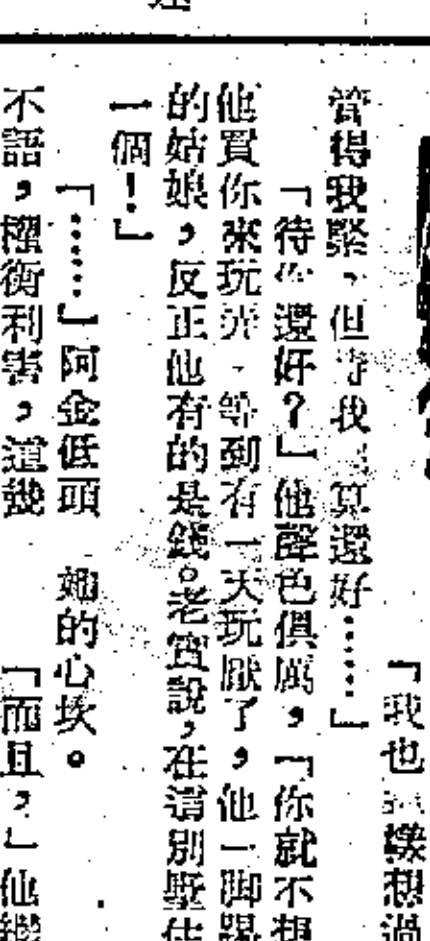 「我也這樣想過
管得我緊，但待我算還好……」
「待你還好？」他聲色俱厲，「你就不想
他買你來玩弄，等到有一天玩厭了，他一脚踢
的姑娘，反正他有的是錢。老實說，在這別墅住
一個！」
「……」阿金低頭
不語，權衡利害，這幾
她的心坎。
「而且，」他繼